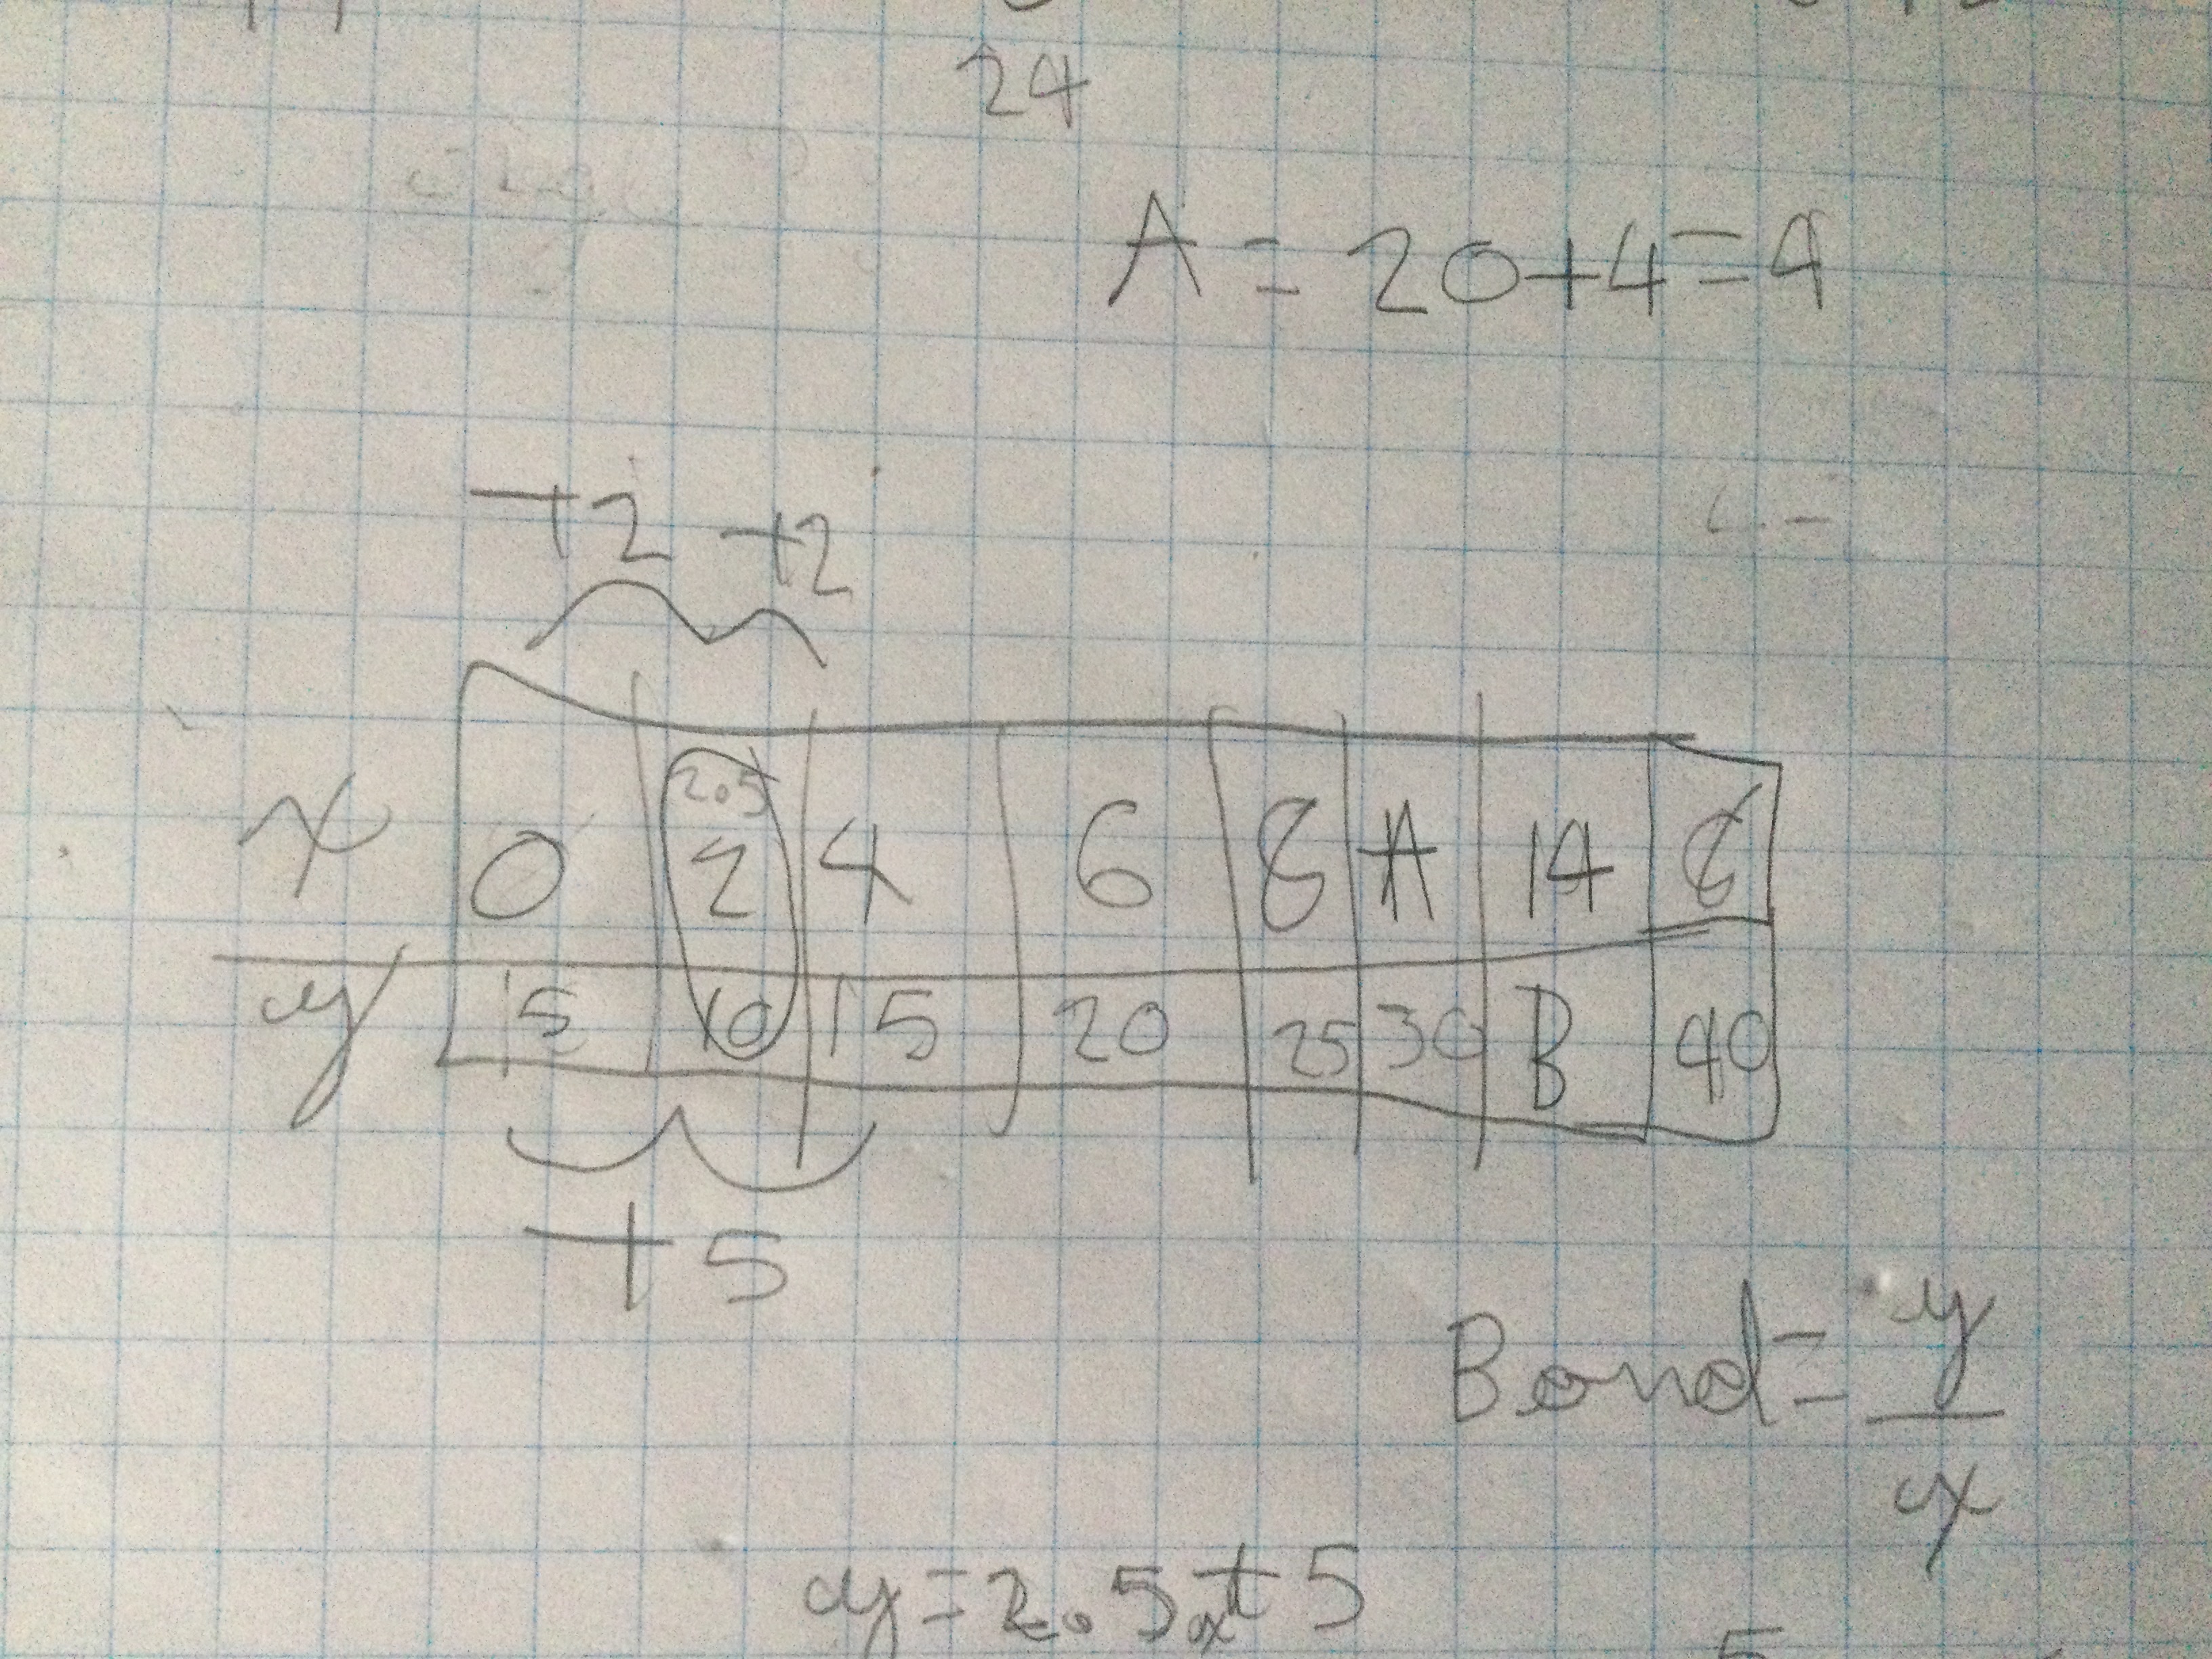 24
A = 20+4=9
+2 +2
2.5
x 0 2 4 6 8 A 14
y 5 10 15 20 25 30 B 40
+5
Bond= y/x
y=2.5x+5
5